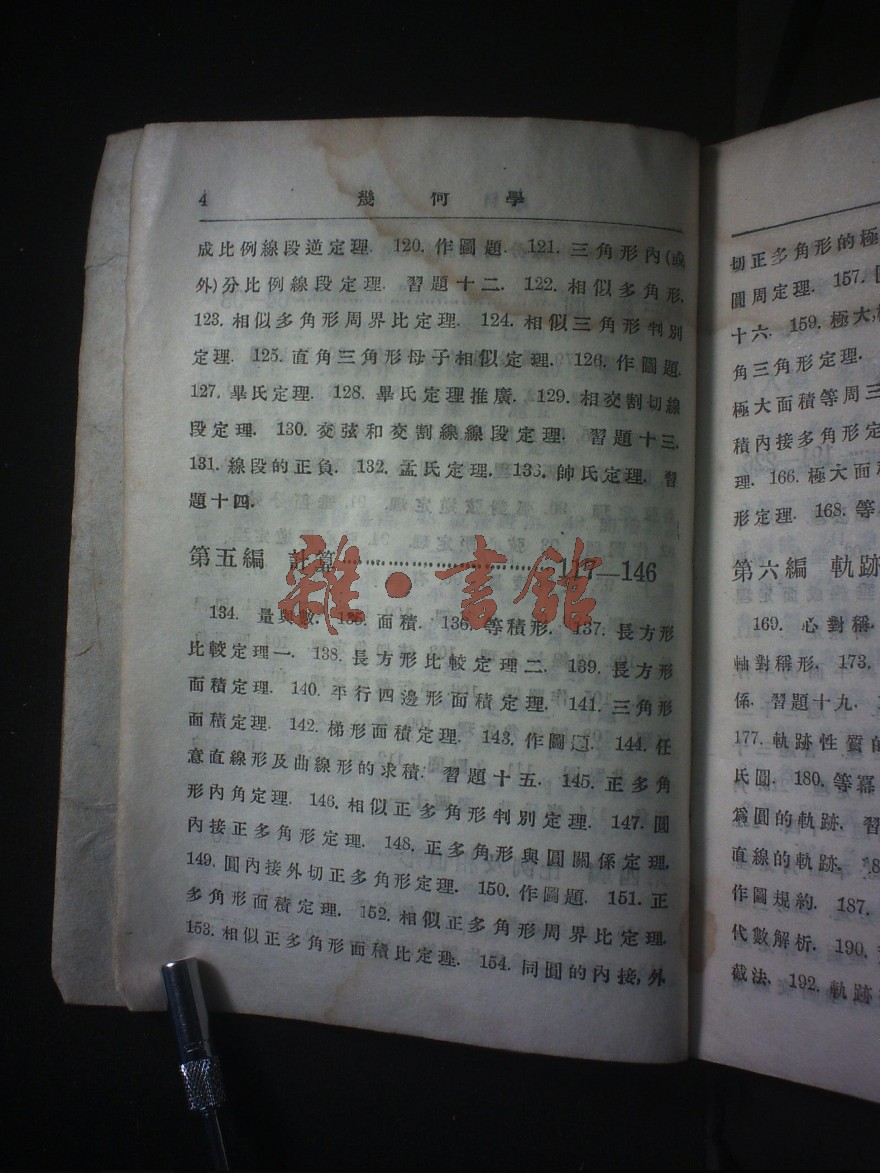 4 幾何學
成比例線段逆定理. 120. 作圖題. 121. 三角形內(或
外)分比例線段定理. 習題十二. 122. 相似多角形.
123. 相似多角形周界比定理. 124. 相似三角形判別
定理. 125. 直角三角形母子相似定理. 126. 作圖題.
127. 畢氏定理. 128. 畢氏定理推廣. 129. 相交割切線
段定理. 130. 交弦和交割線線段定理. 習題十三.
131. 線段的正負. 132. 孟氏定理. 133. 帥氏定理. 習
題十四.
第五編 計算 117—146
134. 量與數. 135. 面積. 136. 等積形. 137. 長方形
比較定理一. 138. 長方形比較定理二. 139. 長方形
面積定理. 140. 平行四邊形面積定理. 141. 三角形
面積定理. 142. 梯形面積定理. 143. 作圖題. 144. 任
意直線形及曲線形的求積. 習題十五. 145. 正多角
形內角定理. 146. 相似正多角形判別定理. 147. 圓
內接正多角形定理. 148. 正多角形與圓關係定理.
149. 圓內接外切正多角形定理. 150. 作圖題. 151. 正
多角形面積定理. 152. 相似正多角形周界比定理.
153. 相似正多角形面積比定理. 154. 同圓的內接,外
雜·書館
切正多角形的極
圓周定理. 157.
十六. 159. 極大,
角三角形定理.
極大面積等周三
積內接多角形定
理. 166. 極大面
形定理. 168. 等
第六編 軌跡
169. 心對稱.
軸對稱形. 173.
係. 習題十九.
177. 軌跡性質的
氏圓. 180. 等冪
爲圓的軌跡. 習
直線的軌跡.
作圖規約. 187.
代數解析. 190.
截法. 192. 軌跡